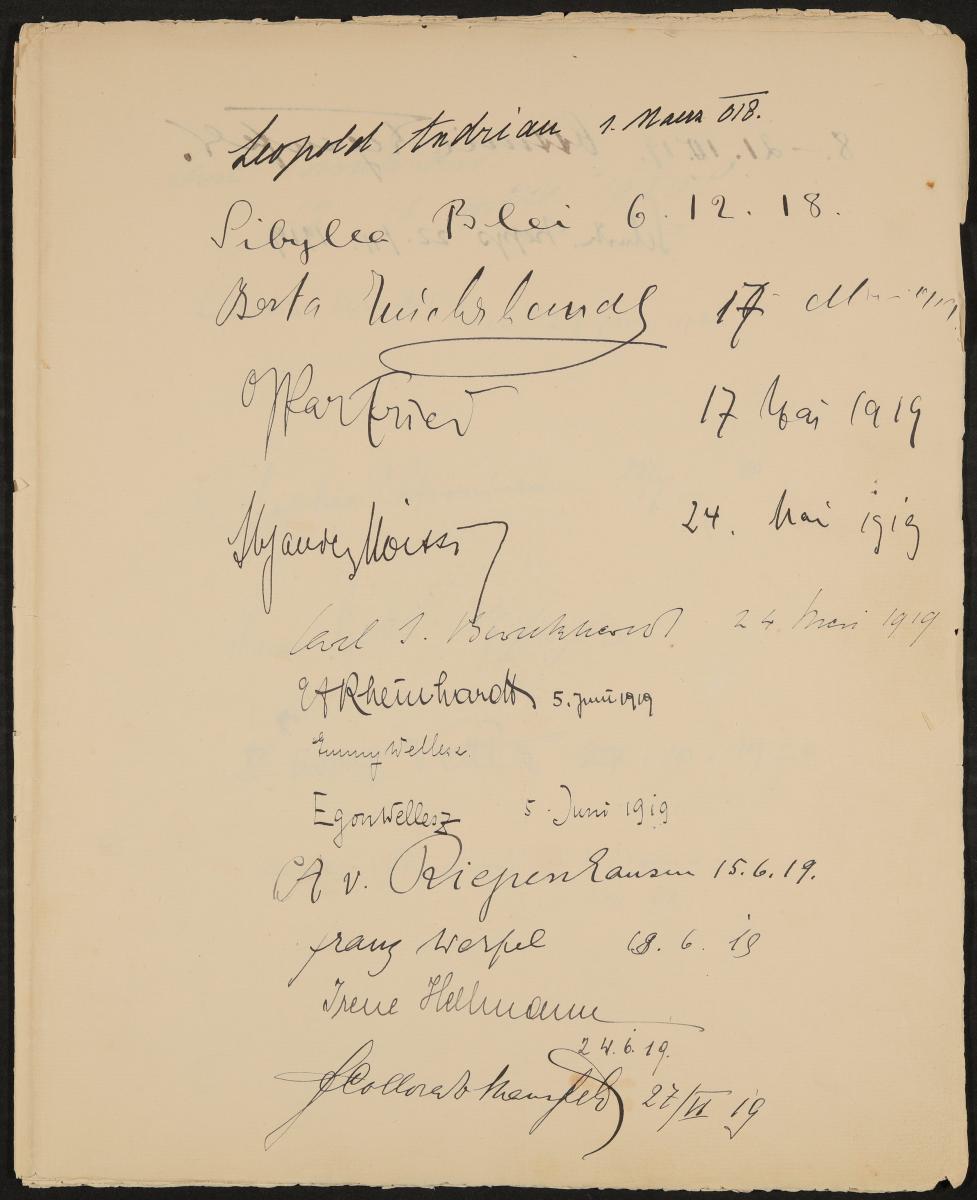 Leopold Andrian 1. Maerz 918.
Sibylla Blei 6.12.18.
Berta Zuckerkandl 17
Oskar Fried 17 Mai 1919
Alexander Moissi 24. Mai 1919
Carl J. Burckhardt 24 Mai 1919.
EARheinhardt 5. Juni 1919
Emmy Wellesz.
Egon Wellesz 5 Juni 1919
v. Riepenhausen 15.6.19.
Franz Werfel 18.6.19
Irene Hellmann
24.6.19.
Colloredo Mannsfeld 27/VI 19